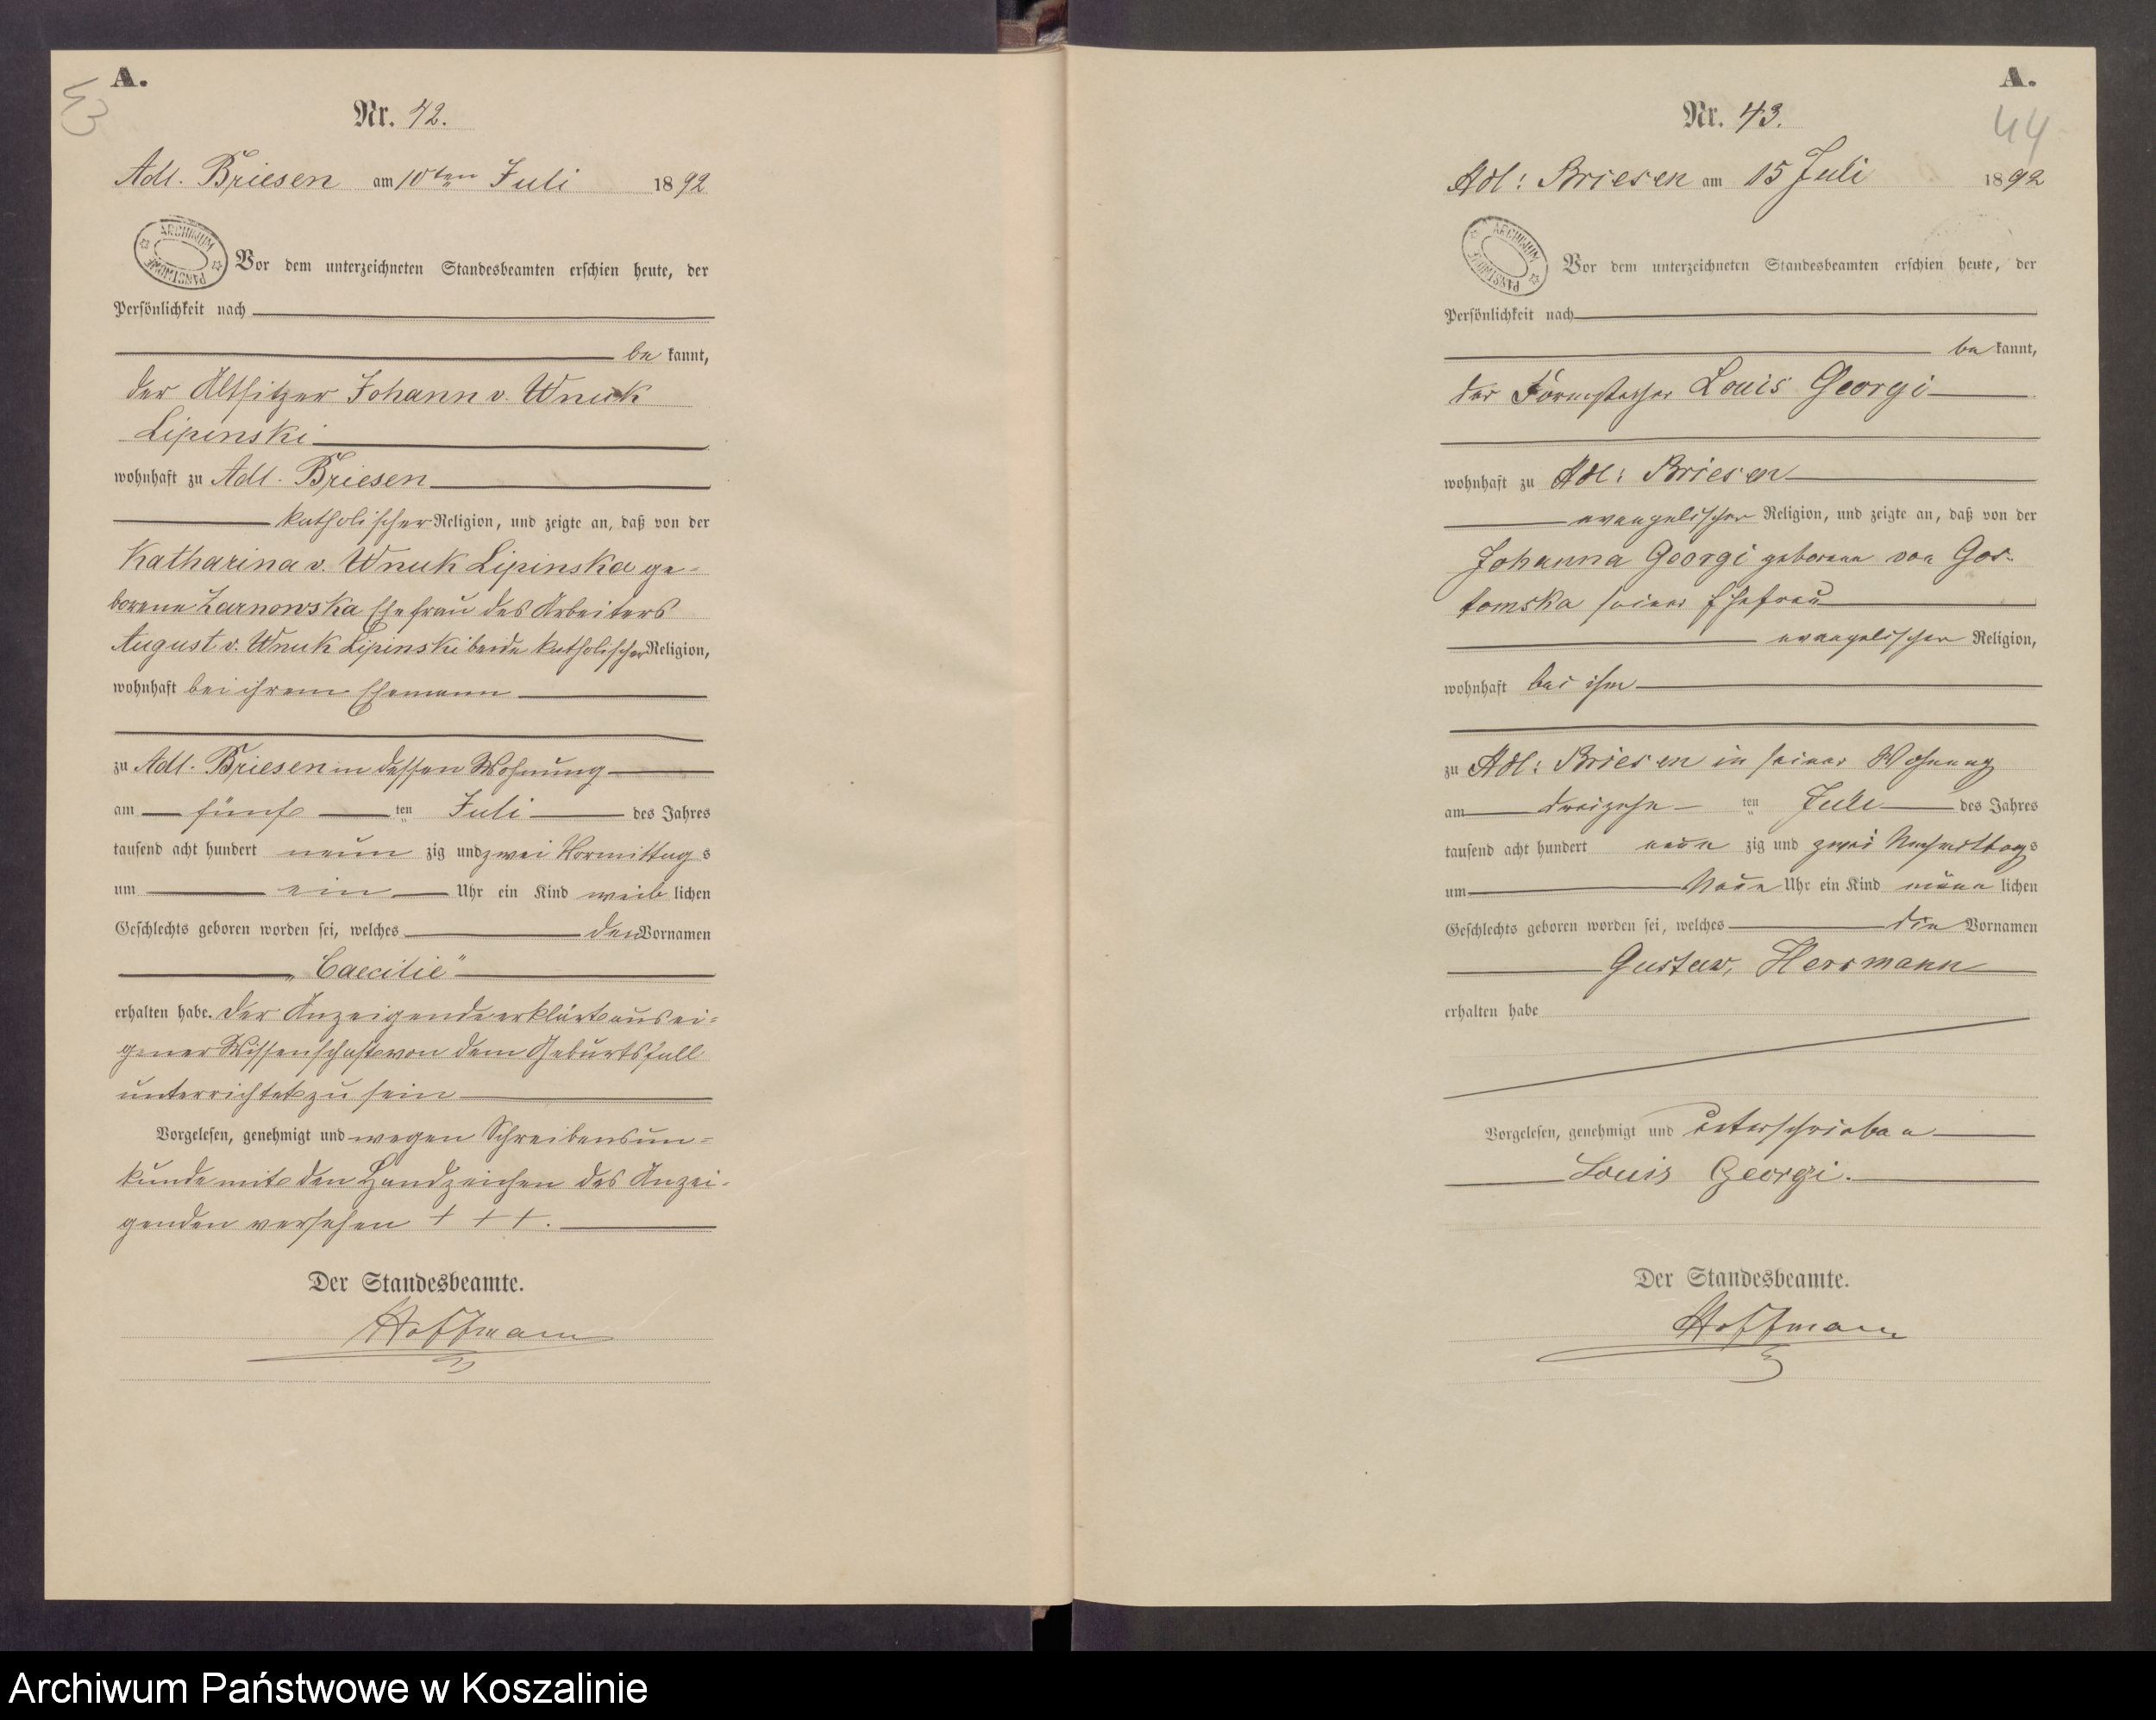 A.
43
Nr. 42.
Adl. Briesen am 10ten Juli 1892
ARCHIWUM PAŃSTWOWE
Vor dem unterzeichneten Standesbeamten erschien heute, der
Persönlichkeit nach
be kannt,
der Altsitzer Johann v. Wnuck
Lipinski
wohnhaft zu Adl. Briesen
katholischer Religion, und zeigte an, daß von der
Katharina v. Wnuk Lipinska ge-
borene Zarnowska Ehefrau des Arbeiters
August v. Wnuk Lipinski beide katholischer Religion,
wohnhaft bei ihrem Ehemann
zu Adl. Briesen in dessen Wohnung
am fünf ten Juli des Jahres
tausend acht hundert neun zig und zwei Vormittag s
um ein Uhr ein Kind weib lichen
Geschlechts geboren worden sei, welches den Vornamen
„Caecilie"
erhalten habe. Der Anzeigende erklärt aus ei=
gener Wissenschaft von dem Geburtsfall
unterrichtet zu sein
Vorgelesen, genehmigt und wegen Schreibensun=
kunde mit den Handzeichen des Anzei-
genden versehen + + +.
Der Standesbeamte.
Hoffmann
A.
44
Nr. 43.
Adl: Briesen am 15 Juli 1892
ARCHIWUM PAŃSTWOWE
Vor dem unterzeichneten Standesbeamten erschien heute, der
Persönlichkeit nach
be kannt,
der Louis Georgi
wohnhaft zu Adl: Briesen
evangelischer Religion, und zeigte an, daß von der
Johanna Georgi geborene von Gos-
tomska seiner Ehefrau
evangelischer Religion,
wohnhaft bei ihm
zu Adl: Briesen in seiner Wohnung
am dreizehn ten Juli des Jahres
tausend acht hundert neun zig und zwei Nachmittags
um Neun Uhr ein Kind männ lichen
Geschlechts geboren worden sei, welches die Vornamen
Gustav, Herrmann
erhalten habe
Vorgelesen, genehmigt und unterschrieben
Louis Georgi.
Der Standesbeamte.
Hoffmann
Archiwum Państwowe w Koszalinie